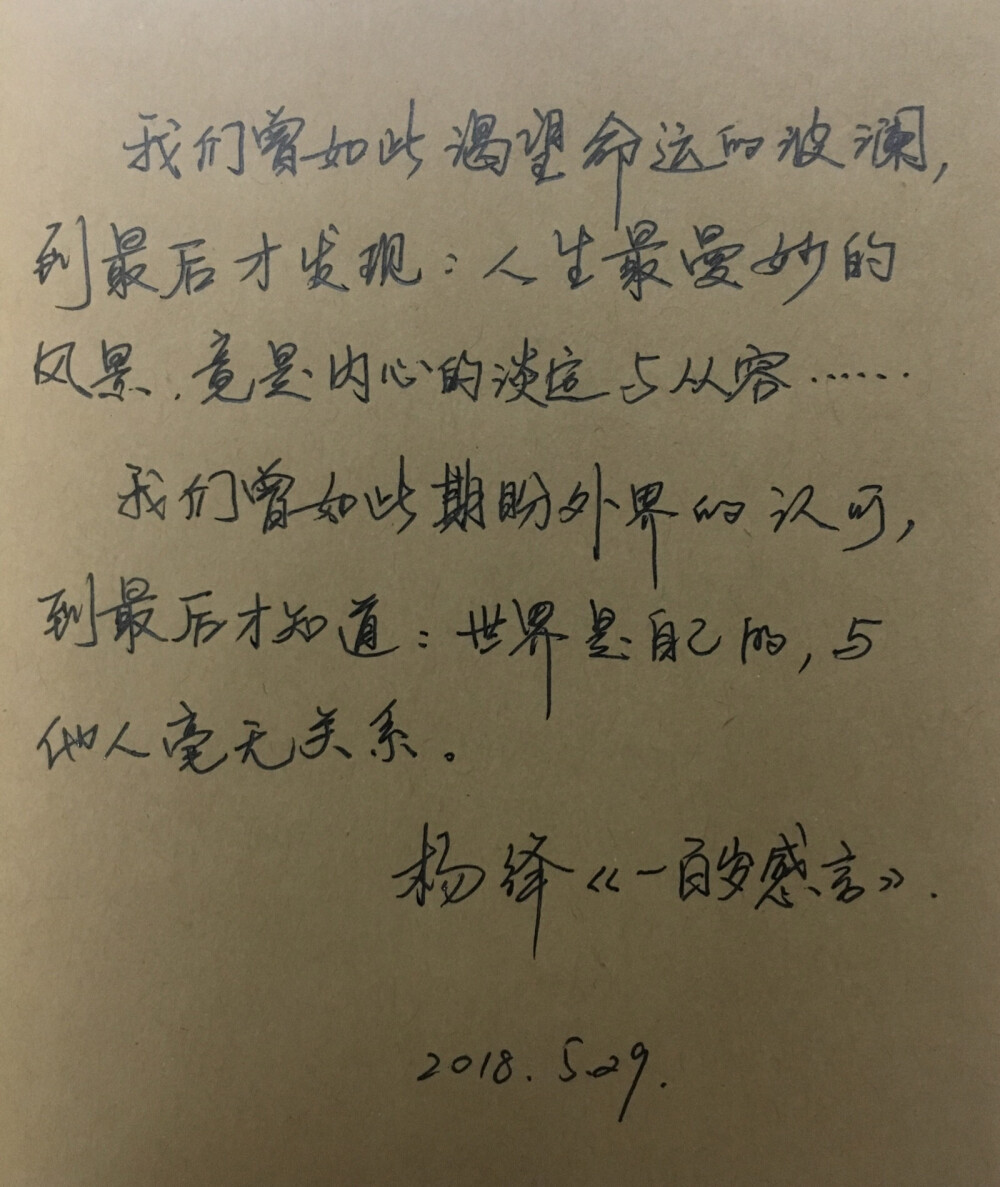 我们曾如此渴望命运的波澜，
到最后才发现：人生最曼妙的
风景，竟是内心的淡定与从容……
我们曾如此期盼外界的认可，
到最后才知道：世界是自己的，与
他人毫无关系。
杨绛《一百岁感言》.
2018.5.29.